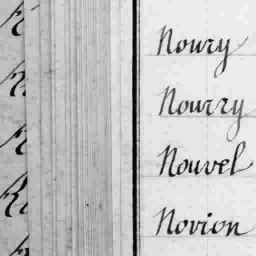 Noury
Nourry
Nouvel
Novion